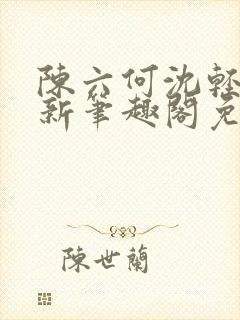 陳六何沈輕
新筆趣閣免
陳世蘭